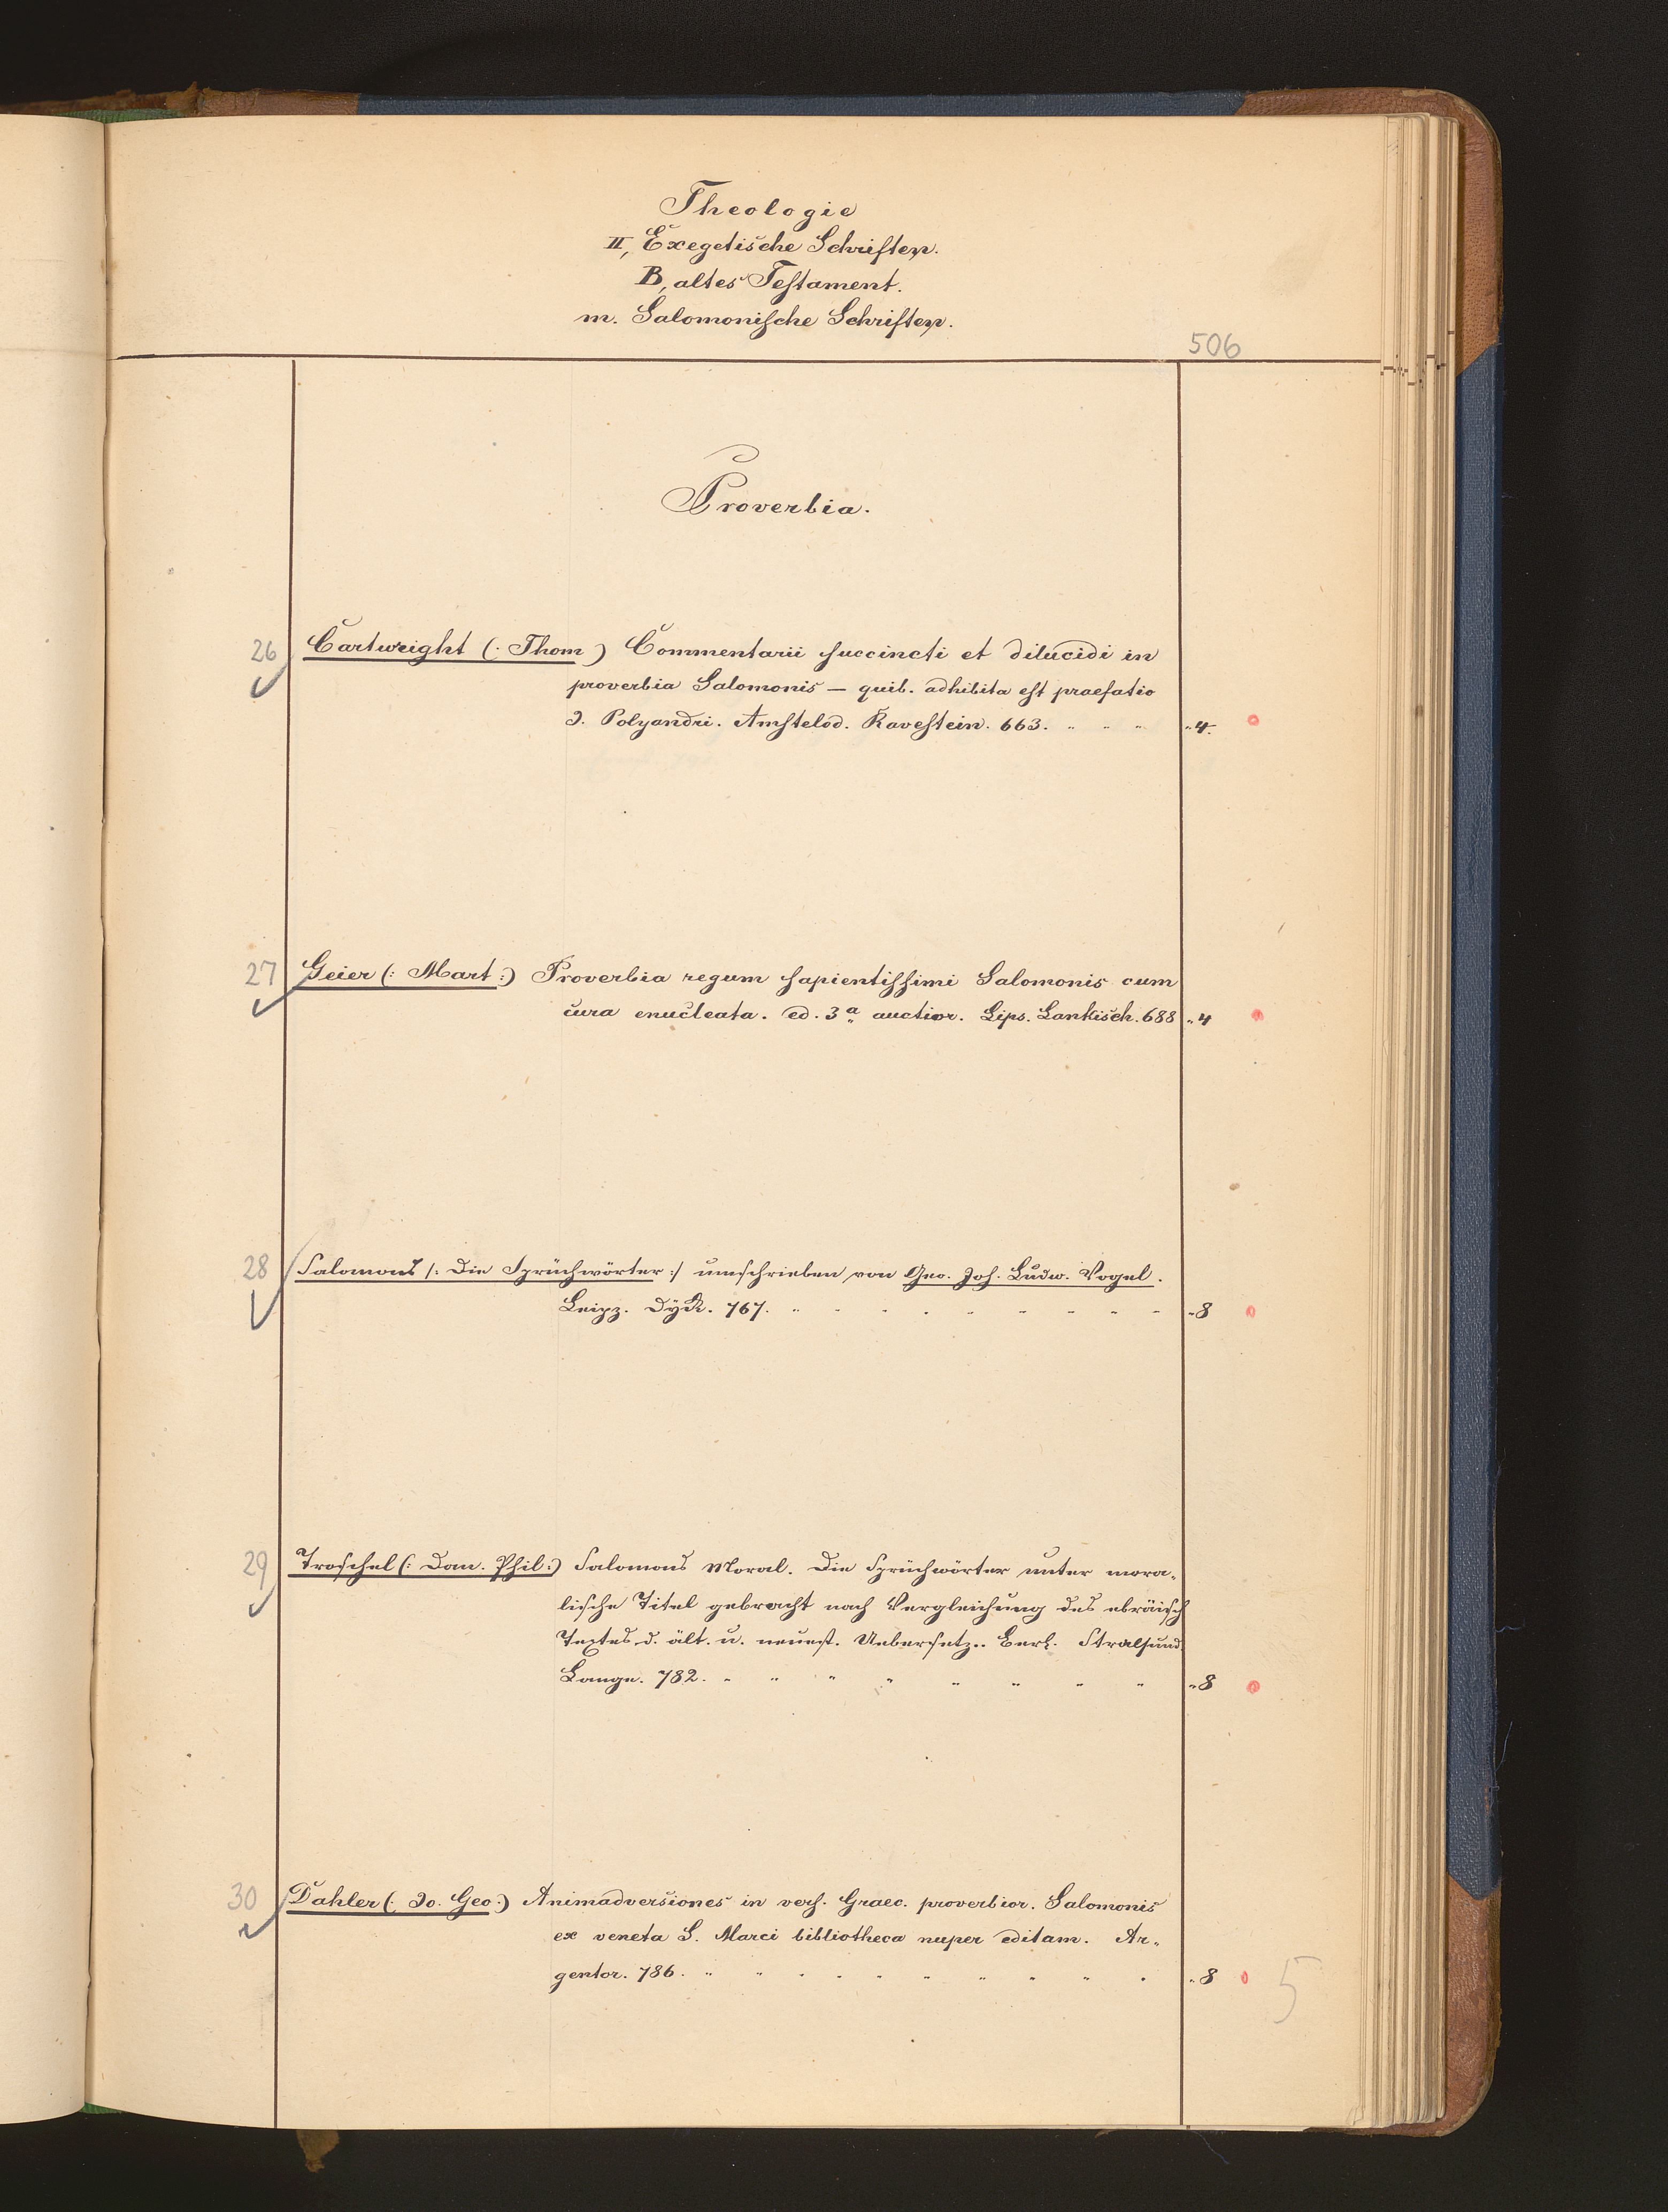 Theologie
II, Exegetische Schriften.
B, altes Testament.
m. Salomonische Schriften.
506
Proverbia.
26 Cartwright (: Thom ) Commentarii succincti et dilucidi in
proverbia Salomonis — quib. adhibita est praefatio
J. Polyandri. Amstelod. Ravestein. 663. " " " "4.
27 Geier (: Mart :) Proverbia regum sapientissimi Salomonis cum
cura enucleata. ed. 3a auctior. Lips. Lankisch. 688 "4
28 Salomons /: Die Sprüchwörter :/ umschrieben von Geo. Joh. Ludw. Vogel.
Leipz. Dyck. 767. " " " " " " " " " "8
29 Troschel (: Dan. Phil :) Salomons Moral. Die Sprüchwörter unter mora-
lische Titel gebracht nach Vergleichung des ebräisch
Textes d. ält. u. neuest. Uebersetz.. Berl. Stralsund
Lange. 782. " " " " " " " " "8
30 Dahler (: Jo. Geo :) Animadversiones in vers. Graec. proverbior. Salomonis
ex veneta S. Marci bibliotheca nuper editam. Ar-
gentor. 786. " " " " " " " " " " "8
5